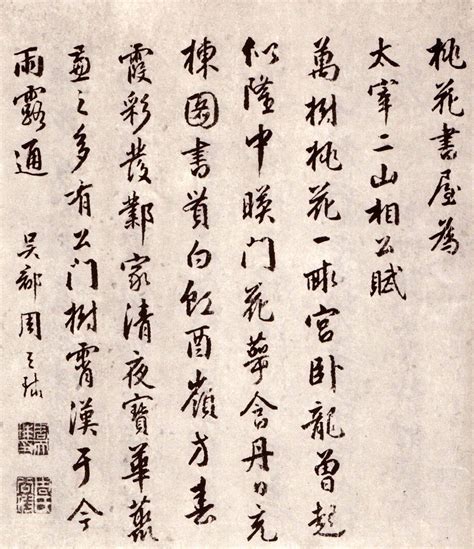 桃花書屋為
太宰二山相公賦
萬樹桃花一畝宮卧龍曾起
似隆中暎門花萼含丹日充
棟圖書貫白虹酉嶺方春
霞彩發鄴家清夜寶華藂
之多有公門樹霄漢于今
雨露通
吳郡周天球